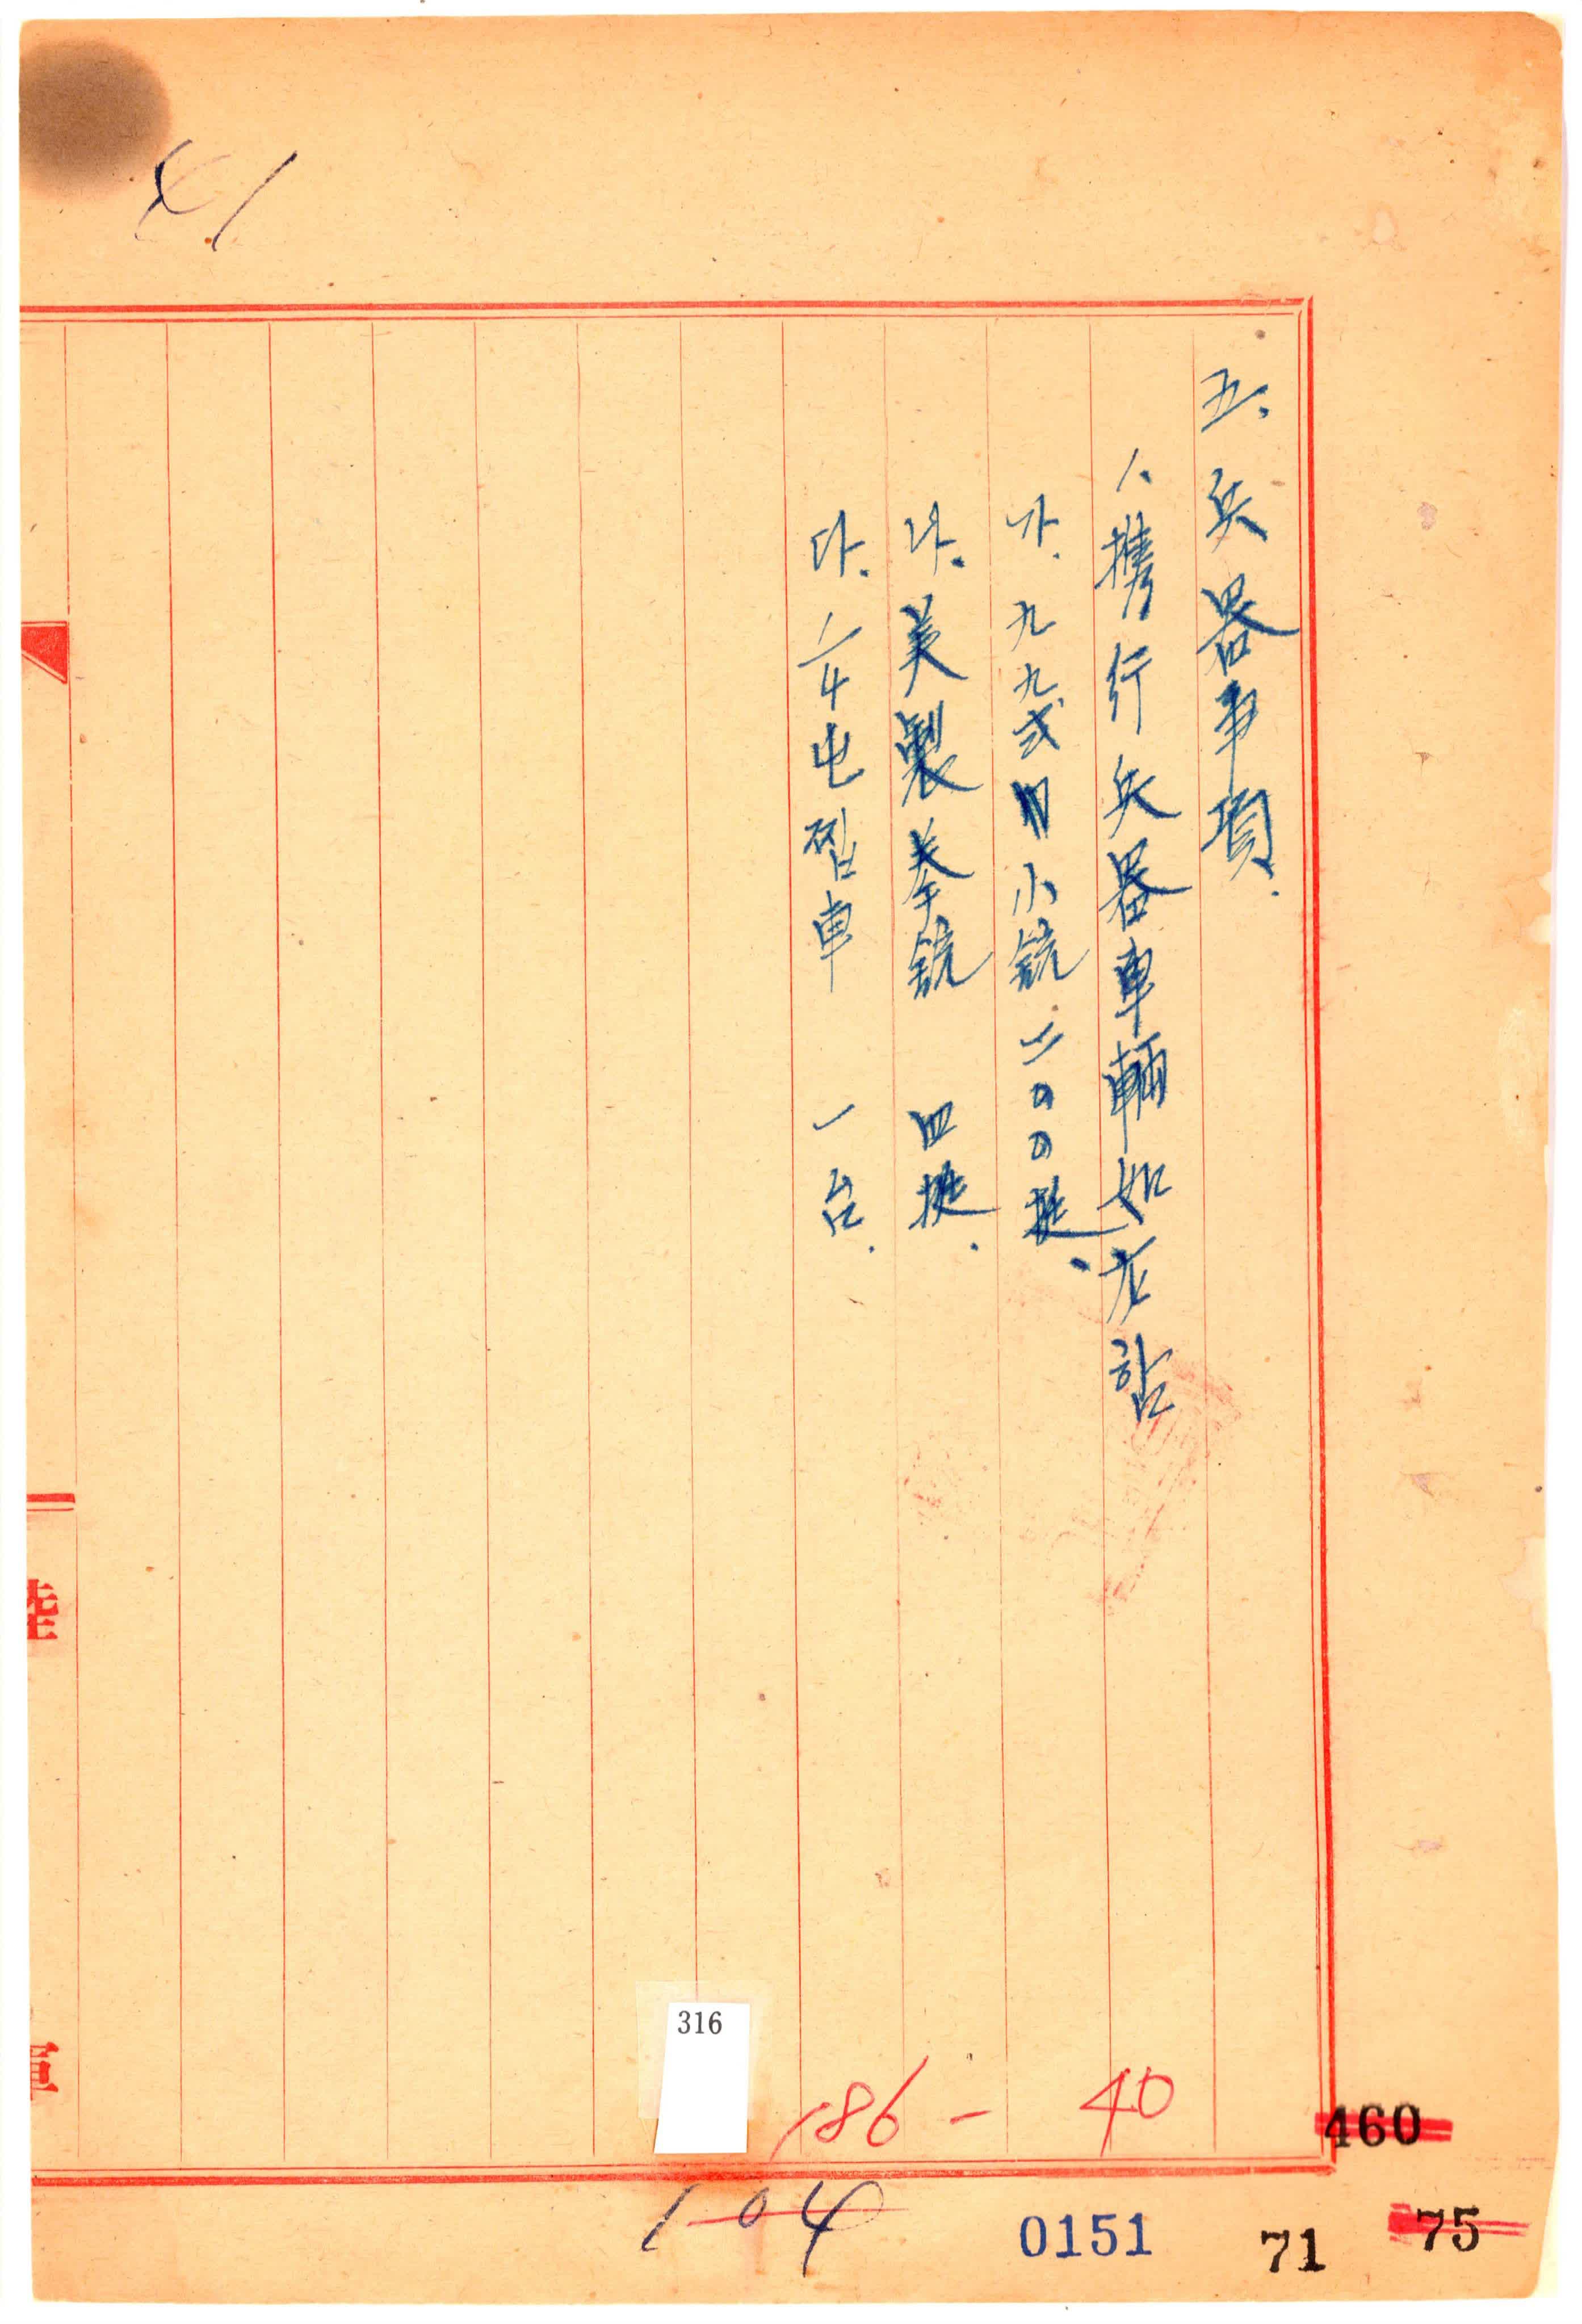 五. 兵器事項.
1. 携行兵器車輛如左함
가. 九九式 小銃 二〇〇挺.
나. 美製拳銃 四挺.
다. 1/4屯찝車 一台.
41
陸
軍
316
186 - 40
460
104
0151
71
75